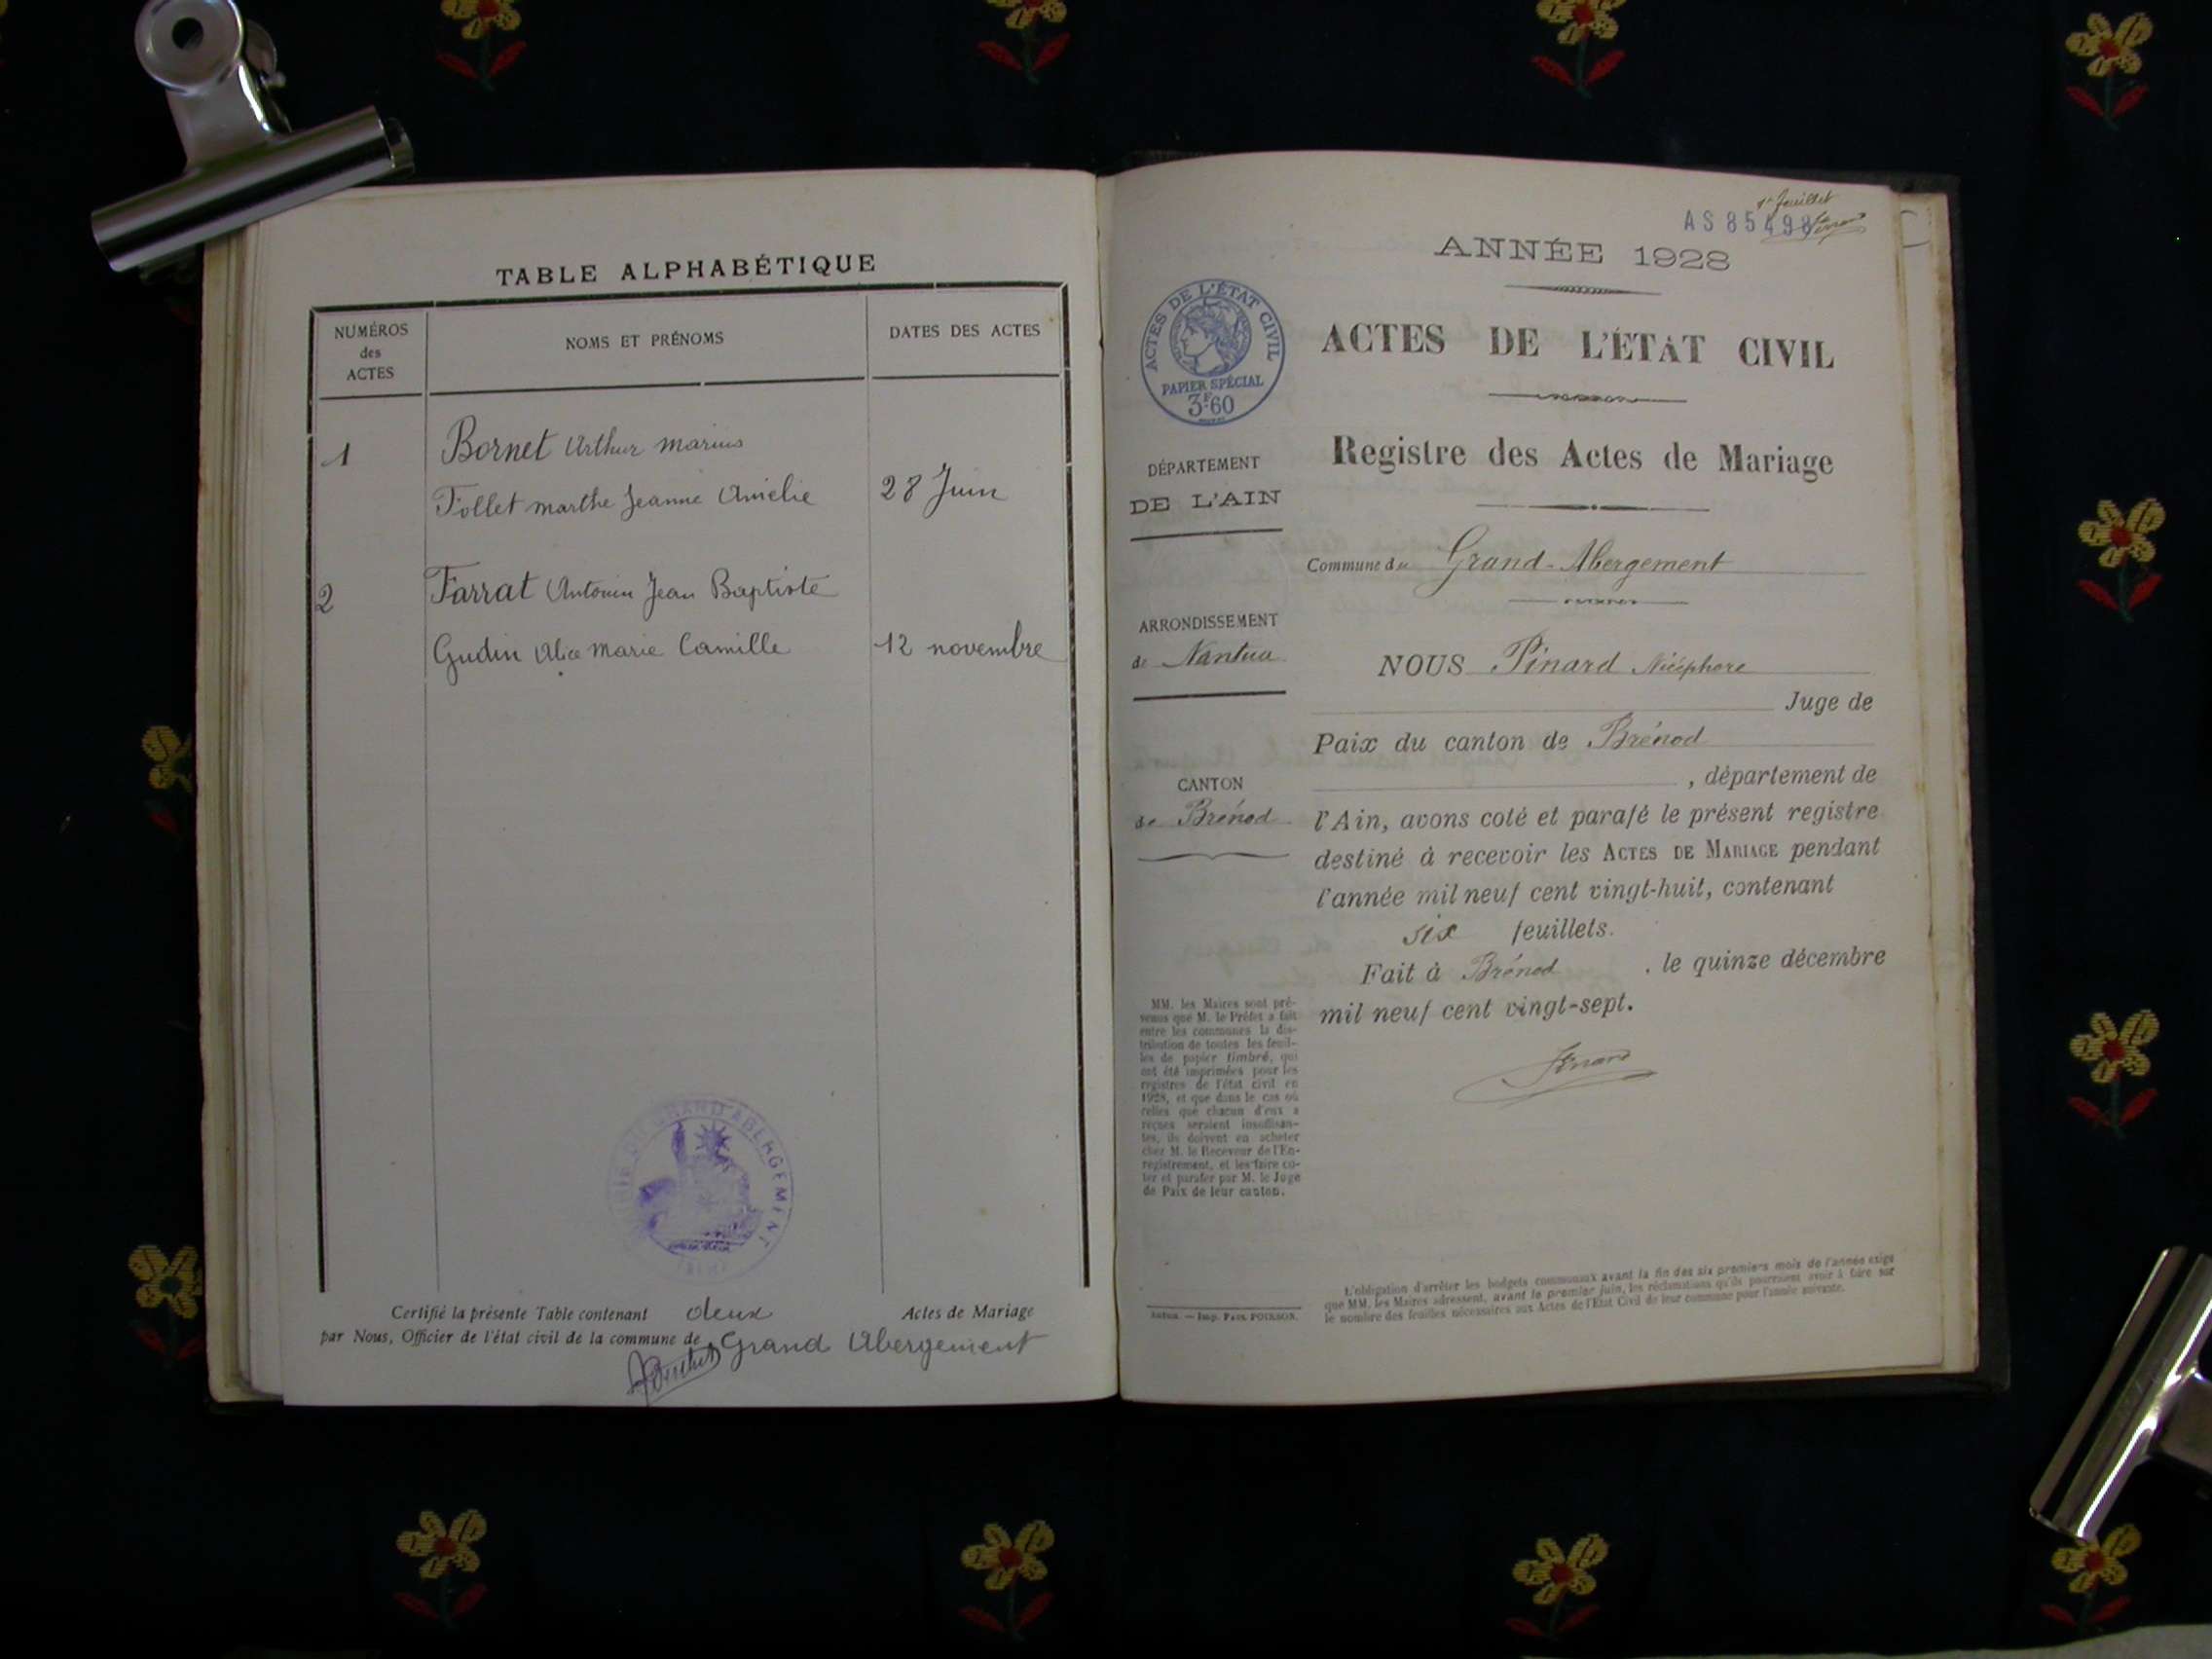 TABLE ALPHABÉTIQUE
NUMÉROS
des
ACTES
NOMS ET PRÉNOMS
DATES DES ACTES
1
Bornet Arthur Marius
Tollet Marthe Jeanne Amélie
28 Juin
2
Farrat Antonin Jean Baptiste
Gudin Alice Marie Camille
12 novembre
GRAND ABERGEMENT
Certifié la présente Table contenant deux Actes de Mariage
par Nous, Officier de l'état civil de la commune de Grand Abergement
1er feuillet
AS 85498
ANNÉE 1928
ACTES DE L'ÉTAT CIVIL
PAPIER SPÉCIAL
3F60
ACTES DE L'ÉTAT CIVIL
Registre des Actes de Mariage
DÉPARTEMENT
DE L'AIN
Commune du Grand-Abergement
ARRONDISSEMENT
de Nantua
NOUS Pinard Nicéphore
Juge de
Paix du canton de Brénod
CANTON
de Brénod
, département de
l'Ain, avons coté et parafé le présent registre
destiné à recevoir les ACTES DE MARIAGE pendant
l'année mil neuf cent vingt-huit, contenant
six feuillets.
Fait à Brénod, le quinze décembre
mil neuf cent vingt-sept.
Pinard
MM. les Maires sont pré-
venus que M. le Préfet a fait
entre les communes la dis-
tribution de toutes les feuil-
les de papier timbré, qui
ont été imprimées pour les
registres de l'état civil en
1928, et que dans le cas où
celles que chacun d'eux a
reçues seraient insuffisan-
tes, ils doivent en acheter
chez M. le Receveur de l'En-
registrement, et les faire co-
ter et parafer par M. le Juge
de Paix de leur canton.
Imp. PAUL POURSON.
L'obligation d'arrêter les budgets communaux avant la fin des six premiers mois de l'année exige
que MM. les Maires adressent, avant le premier juin, les réclamations qu'ils pourraient avoir à faire sur
le nombre des feuilles nécessaires aux Actes de l'Etat Civil de leur commune pour l'année suivante.